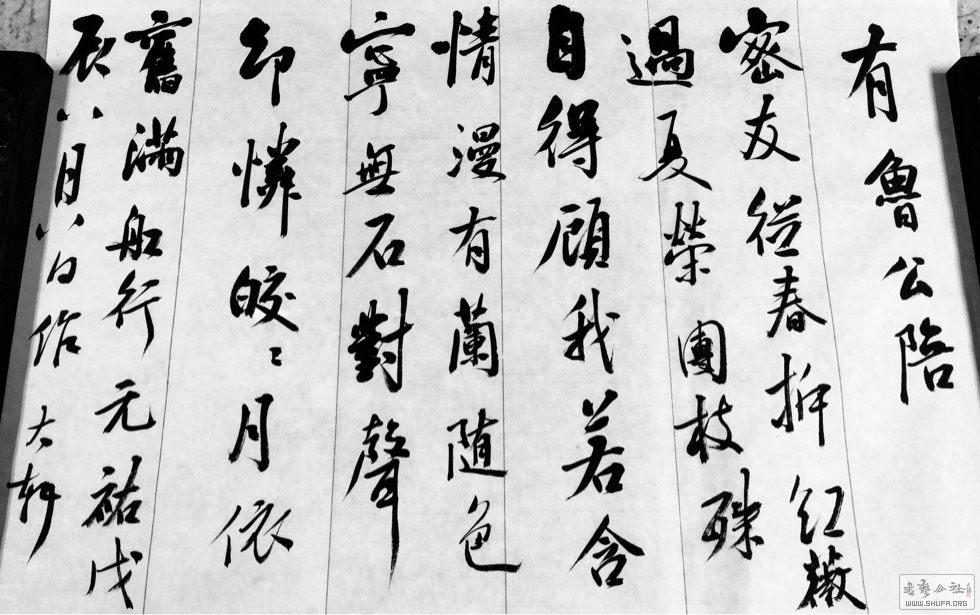 有魯公陪
密友從春拆紅薇
過夏榮團枝殊
自得顧我若含
情漫有蘭隨色
寧無石對聲
却憐皎〻月依
舊滿船行元祐戊
辰八月八日作 大軒
書藝公社
WWW.SHUFA.ORG